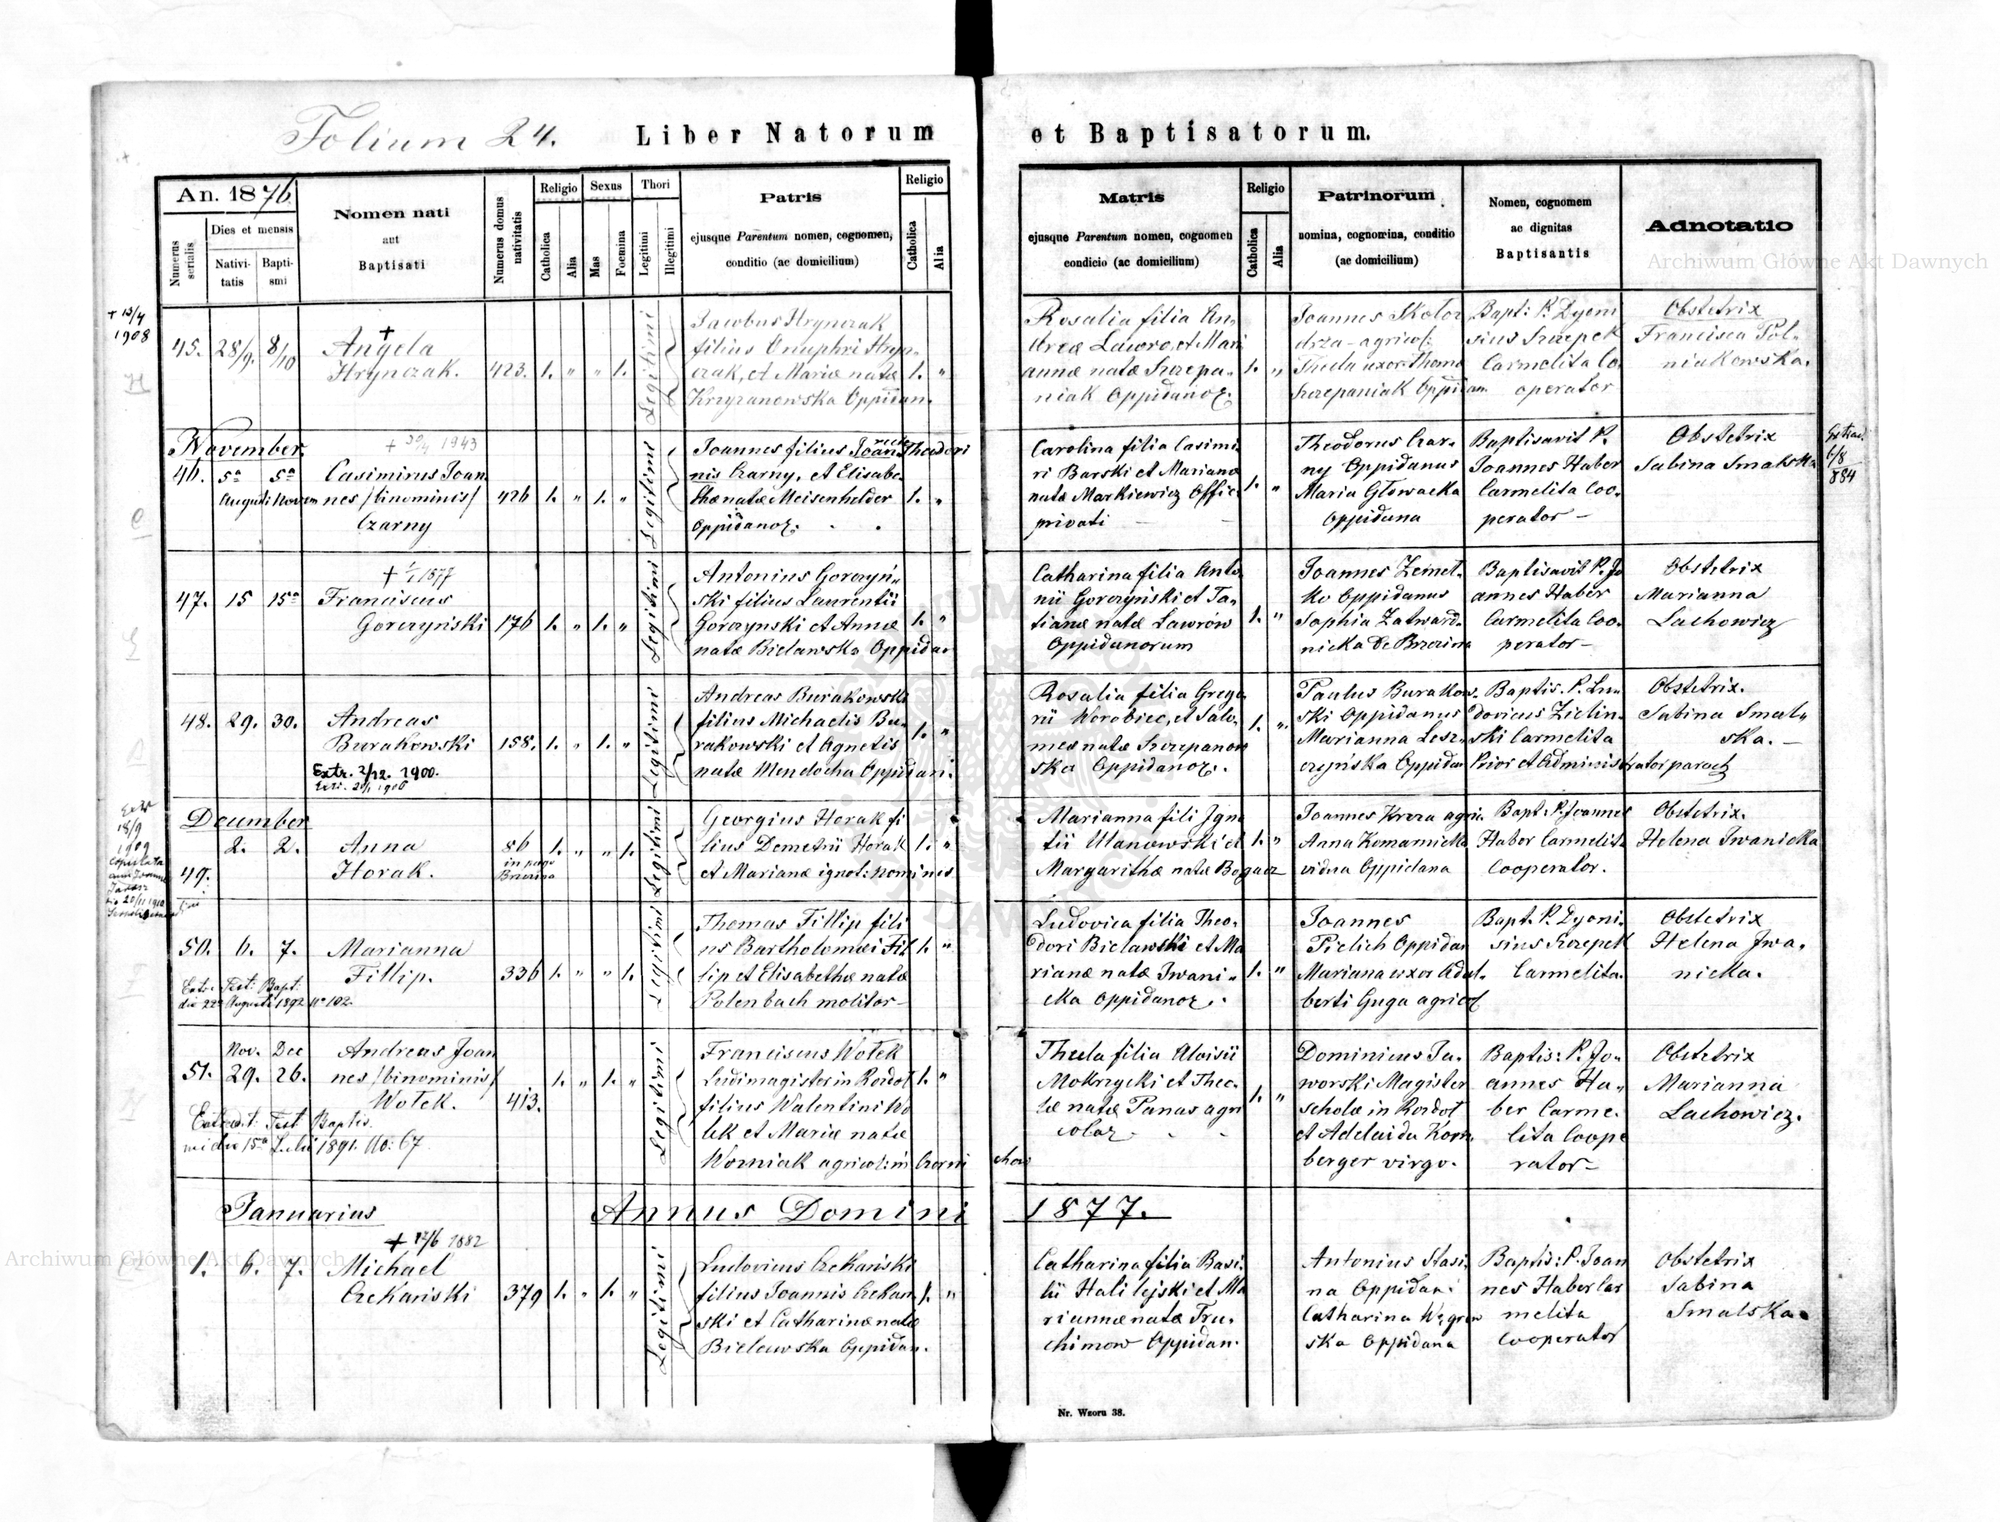 Folium 24.
Liber Natorum et Baptisatorum.
An. 1876
Numerus serialis
Dies et mensis
Nativi-
tatis
Bapti-
smi
Nomen nati
aut
Baptisati
Numerus domus nativitatis
Religio
Catholica
Alia
Sexus
Mas
Foemina
Thori
Legitimi
Illegitimi
Patris
ejusque Parentum nomen, cognomen,
conditio (ac domicilium)
Religio
Catholica
Alia
Matris
ejusque Parentum nomen, cognomen
condicio (ac domicilium)
Religio
Catholica
Alia
Patrinorum
nomina, cognomina, conditio
(ac domicilium)
Nomen, cognomem
ac dignitas
Baptisantis
Adnotatio
Archiwum Główne Akt Dawnych
+ 13/4
1908
H
45. 28/9. 8/10
+
Angela
Hrynczak.
423. 1. " " 1.
Legitimi
Jacobus Hrynczak
filius Onuphri Hryn-
czak, et Mariæ natæ
Krzyzanowska Oppidan.
1. "
Rosalia filia An-
dreæ Lawro, et Mari
annæ natæ Szczepa-
niak Oppidanor.
1. "
Joannes Skotor
drza - agricol.
Thecla uxor Thoma
Szczepaniak Oppidan.
Bapt: P. Dyoni
sius Szczepek
Carmelita Co-
operator
Obstetrix
Francisca Pol-
niakowska.
November
C
46. 5a 5a
Augusti Novem
+ 30/4 1943
Casimirus Joan
nes /binominis/
Czarny
426 1. " 1. "
Legitimi
Joannes filius Theodori
nis Czarny, et Elisabe
thæ natæ Meisenhelder
Oppidanor.
1. "
Carolina filia Casimi-
ri Barski et Marianæ
natæ Markiewicz Offic.
privati
1. "
Theodorus Czar-
ny Oppidanus
Maria Głowacka
Oppidana
Baptisavit P.
Joannes Haber
Carmelita Coo-
perator -
Obstetrix
Sabina Smalska
6/8
884
G
47. 15 15a
+ 1/1 1877
Franciscus
Gorczyński
176 1. " 1. "
Legitimi
Antonius Gorczyń-
ski filius Laurentii
Gorczynski et Annæ
natæ Bielawska Oppidan
1. "
Catharina filia Anto
nii Gorczyński et Ta-
tianæ natæ Lawrów
Oppidanorum
1. "
Joannes Zemet-
ko Oppidanus
Sophia Zatward-
nicka de Brzezina
Baptisavit P. Jo
annes Haber
Carmelita Coo-
perator -
Obstetrix
Marianna
Lachowicz
48. 29. 30.
Andreas
Burakowski
Extr. 2/12. 1900.
158. 1. " 1. "
Legitimi
Andreas Burakowski
filius Michaelis Bu-
rakowski et Agnetis
natæ Mendocha Oppidan.
1. "
Rosalia filia Grego
rii Worobiec, et Salo-
meæ natæ Szczepanow
ska Oppidanor.
1. "
Paulus Burakow-
ski Oppidanus
Marianna Lesz-
czyńska Oppidan
Baptis. P. Lu-
dovicus Zielin-
ski Carmelita
Prior et Administrator paroch
Obstetrix.
Sabina Smal-
ska. -
December
18/9
1909
copulata
49. 2. 2.
Anna
Horak.
86
in pago
Brzezina
1. " " 1.
Legitimi
Georgius Horak fi
lius Demetrii Horak
et Marianæ ignot: nominis
1. "
Marianna fili Igna
tii Ulanowski et
Margarithæ natæ Bogacz
1. "
Joannes Kreza agric.
Anna Komarnicka
vidua Oppidana
Bapt. P. Joannes
Haber Carmelita
Cooperator.
Obstetrix.
Helena Iwanicka
F
50. 6. 7.
Marianna
Fillip.
Extr. Test. Bapt.
die 22a Augusti 1892 No 102.
336 1. " " 1.
Legitimi
Thomas Fillip fili
us Bartholomæi Fil
lip et Elisabethæ natæ
Polenbach molitor -
1. "
Ludovica filia Theo-
dori Bielawski et Ma
rianæ natæ Iwani-
cka Oppidanor.
1. "
Joannes
Pielich Oppidan
Mariana uxor Adal-
berti Guga agricol
Bapt. P. Dyoni-
sius Szczepek
Carmelita.
Obstetrix
Helena Iwa-
nicka.
H
Nov. Dec
51. 29. 26.
Andreas Joan
nes /binominis/
Wołek.
Extradit. Test. Baptis.
die 15a Julii 1891. No: 67
413. 1. " 1. "
Legitimi
Franciscus Wołek
Ludimagister in Rozdoł
filius Valentini Wo
łek et Mariæ natæ
Wozniak agricol: in Czerni
chow
1. "
Thecla filia Aloisii
Mokrzycki et Thec-
læ natæ Panas agri
colar.
1. "
Dominicus Ja-
worski Magister
scholæ in Rozdoł
et Adelaida Korn-
berger virgo.
Baptis: P. Jo-
annes Ha-
ber Carme-
lita Coope
rator -
Obstetrix
Marianna
Lachowicz.
Januarius
Annus Domini 1877.
1. 6. 7.
+ 12/6 1882
Michael
Czekański
379 1. " 1. "
Legitimi
Ludovicus Czekański
filius Joannis Czekan
ski et Catharinæ natæ
Bielawska Oppidan.
1. "
Catharina filia Basi-
lii Halilejski et Ma
riannæ natæ Tru-
chimow Oppidan.
Antonius Stasi-
na Oppidan:
Catharina Węgrow
ska Oppidana
Baptis: P. Joan
nes Haber Car
melita
Cooperator
Obstetrix
Sabina
Smalska.
Archiwum Główne Akt Dawnych
Nr. Wzoru 38.